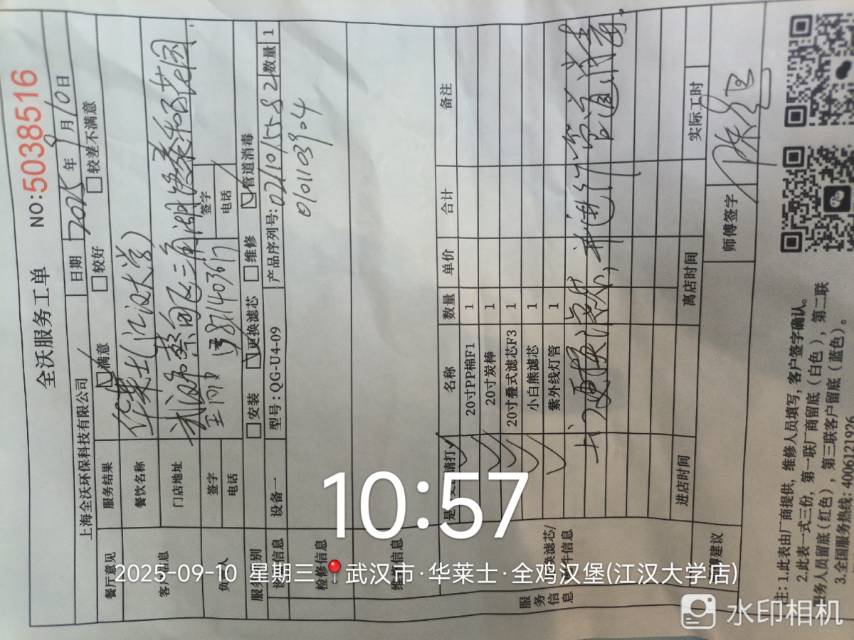 全沃服务工单
NO:5038516
上海全沃环保科技有限公司
日期 2025年9月10日
餐厅意见 服务结果 ☑满意 □较好 □较差不满意
餐饮名称 华莱士(江汉大学)
门店地址
签字 签字
电话 电话
□安装 ☑更换滤芯 □维修 ☑管道消毒
设备一 型号:QG-U4-09 产品序列号: 数量 1
检修信息
请打√ 名称 数量 单价 合计 备注
√ 20寸PP棉F1 1
√ 20寸炭棒 1
√ 20寸叠式滤芯F3 1
√ 小白熊滤芯 1
√ 紫外线灯管 1
以更换滤芯,并进行管道消毒。
进店时间 离店时间 实际工时
师傅签字
注:1.此表由厂商提供,维修人员填写,客户签字确认。
2.此表一式三份,第一联厂商留底(白色),第二联
务人员留底(红色),第三联客户留底(蓝色)。
3.全国服务热线:4006121926
10:57
2025-09-10 星期三 武汉市·华莱士·全鸡汉堡(江汉大学店)
水印相机